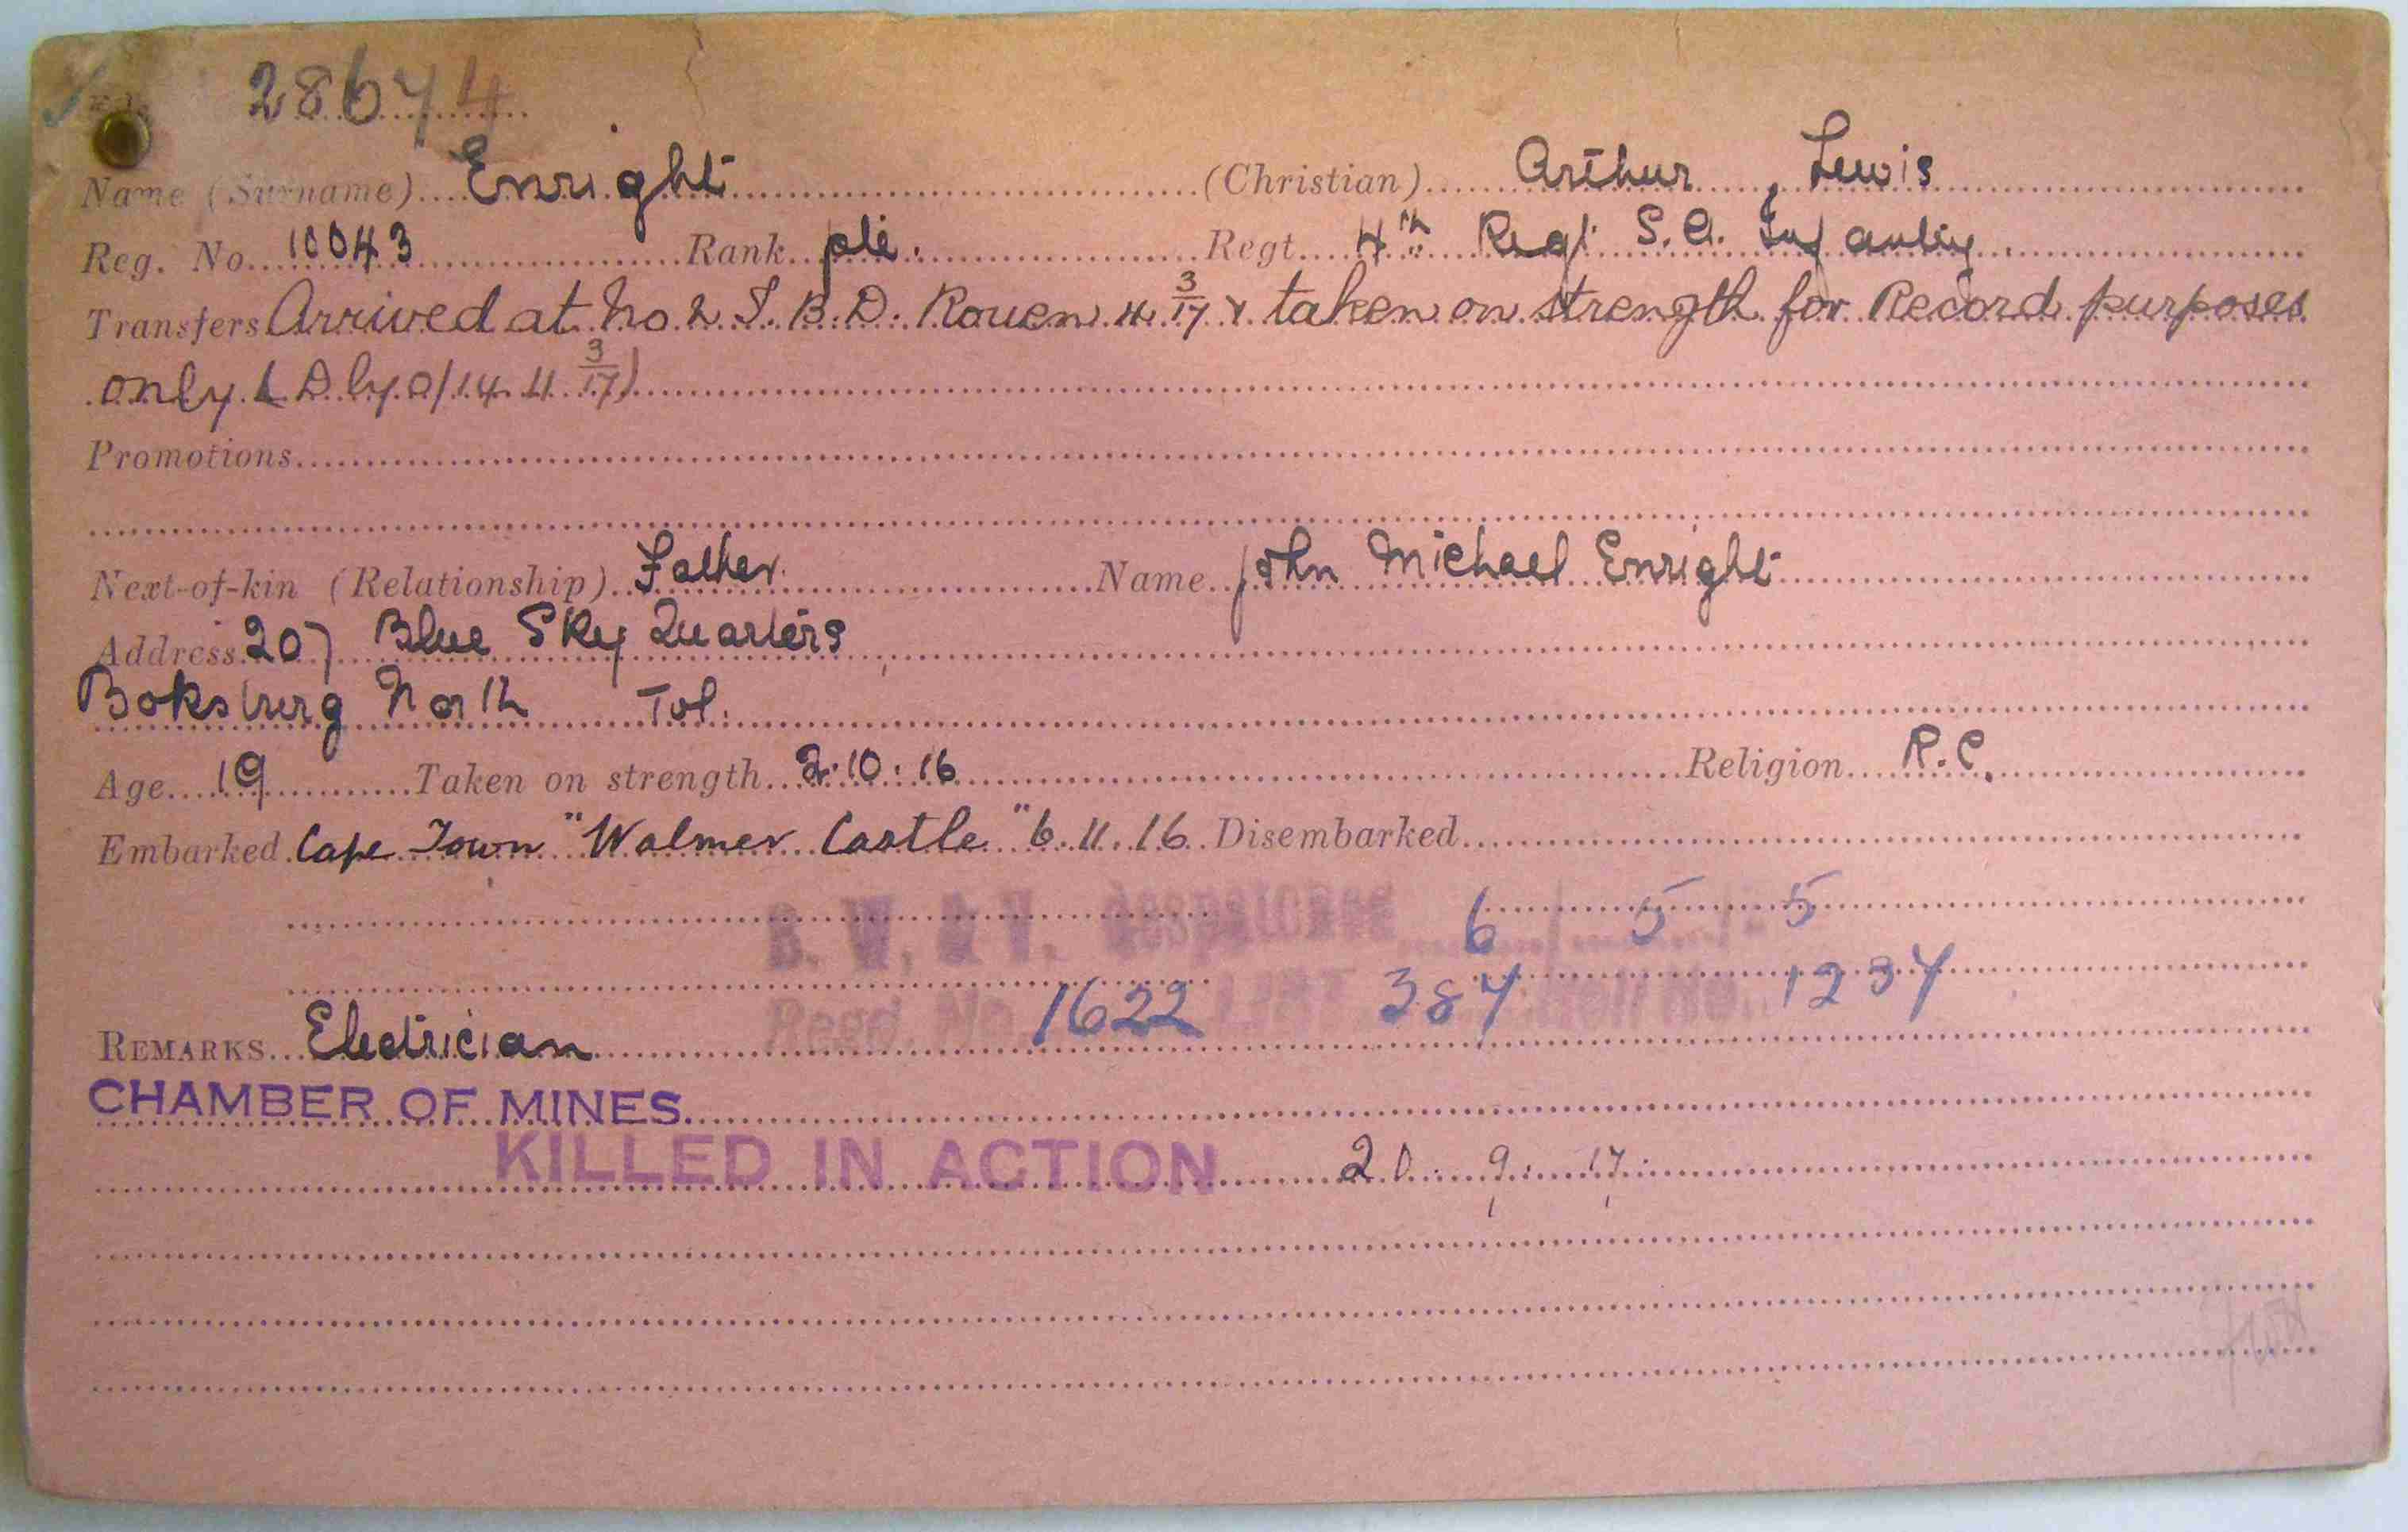 28674
Name (Surname) Enright (Christian) Arthur Lewis
Reg. No. 10043 Rank pte. Regt. 4th Regt. S.A. Infantry
Transfers Arrived at No 2 I.B.D. Rouen 4 3/17 & taken on strength for Record purposes
only (D ly O/14 11 3/17)
Promotions
Next-of-kin (Relationship) Father Name John Michael Enright
Address 207 Blue Sky Quarters
Boksburg North Tvl.
Age 19 Taken on strength 2.10.16 Religion R.C.
Embarked Cape Town "Walmer Castle" 6.11.16 Disembarked
B. W. & V. despatched 6 5 5
Regd. No. 1622 LIST 387 Roll No. 1237
REMARKS Electrician
CHAMBER OF MINES
KILLED IN ACTION 20.9.17.